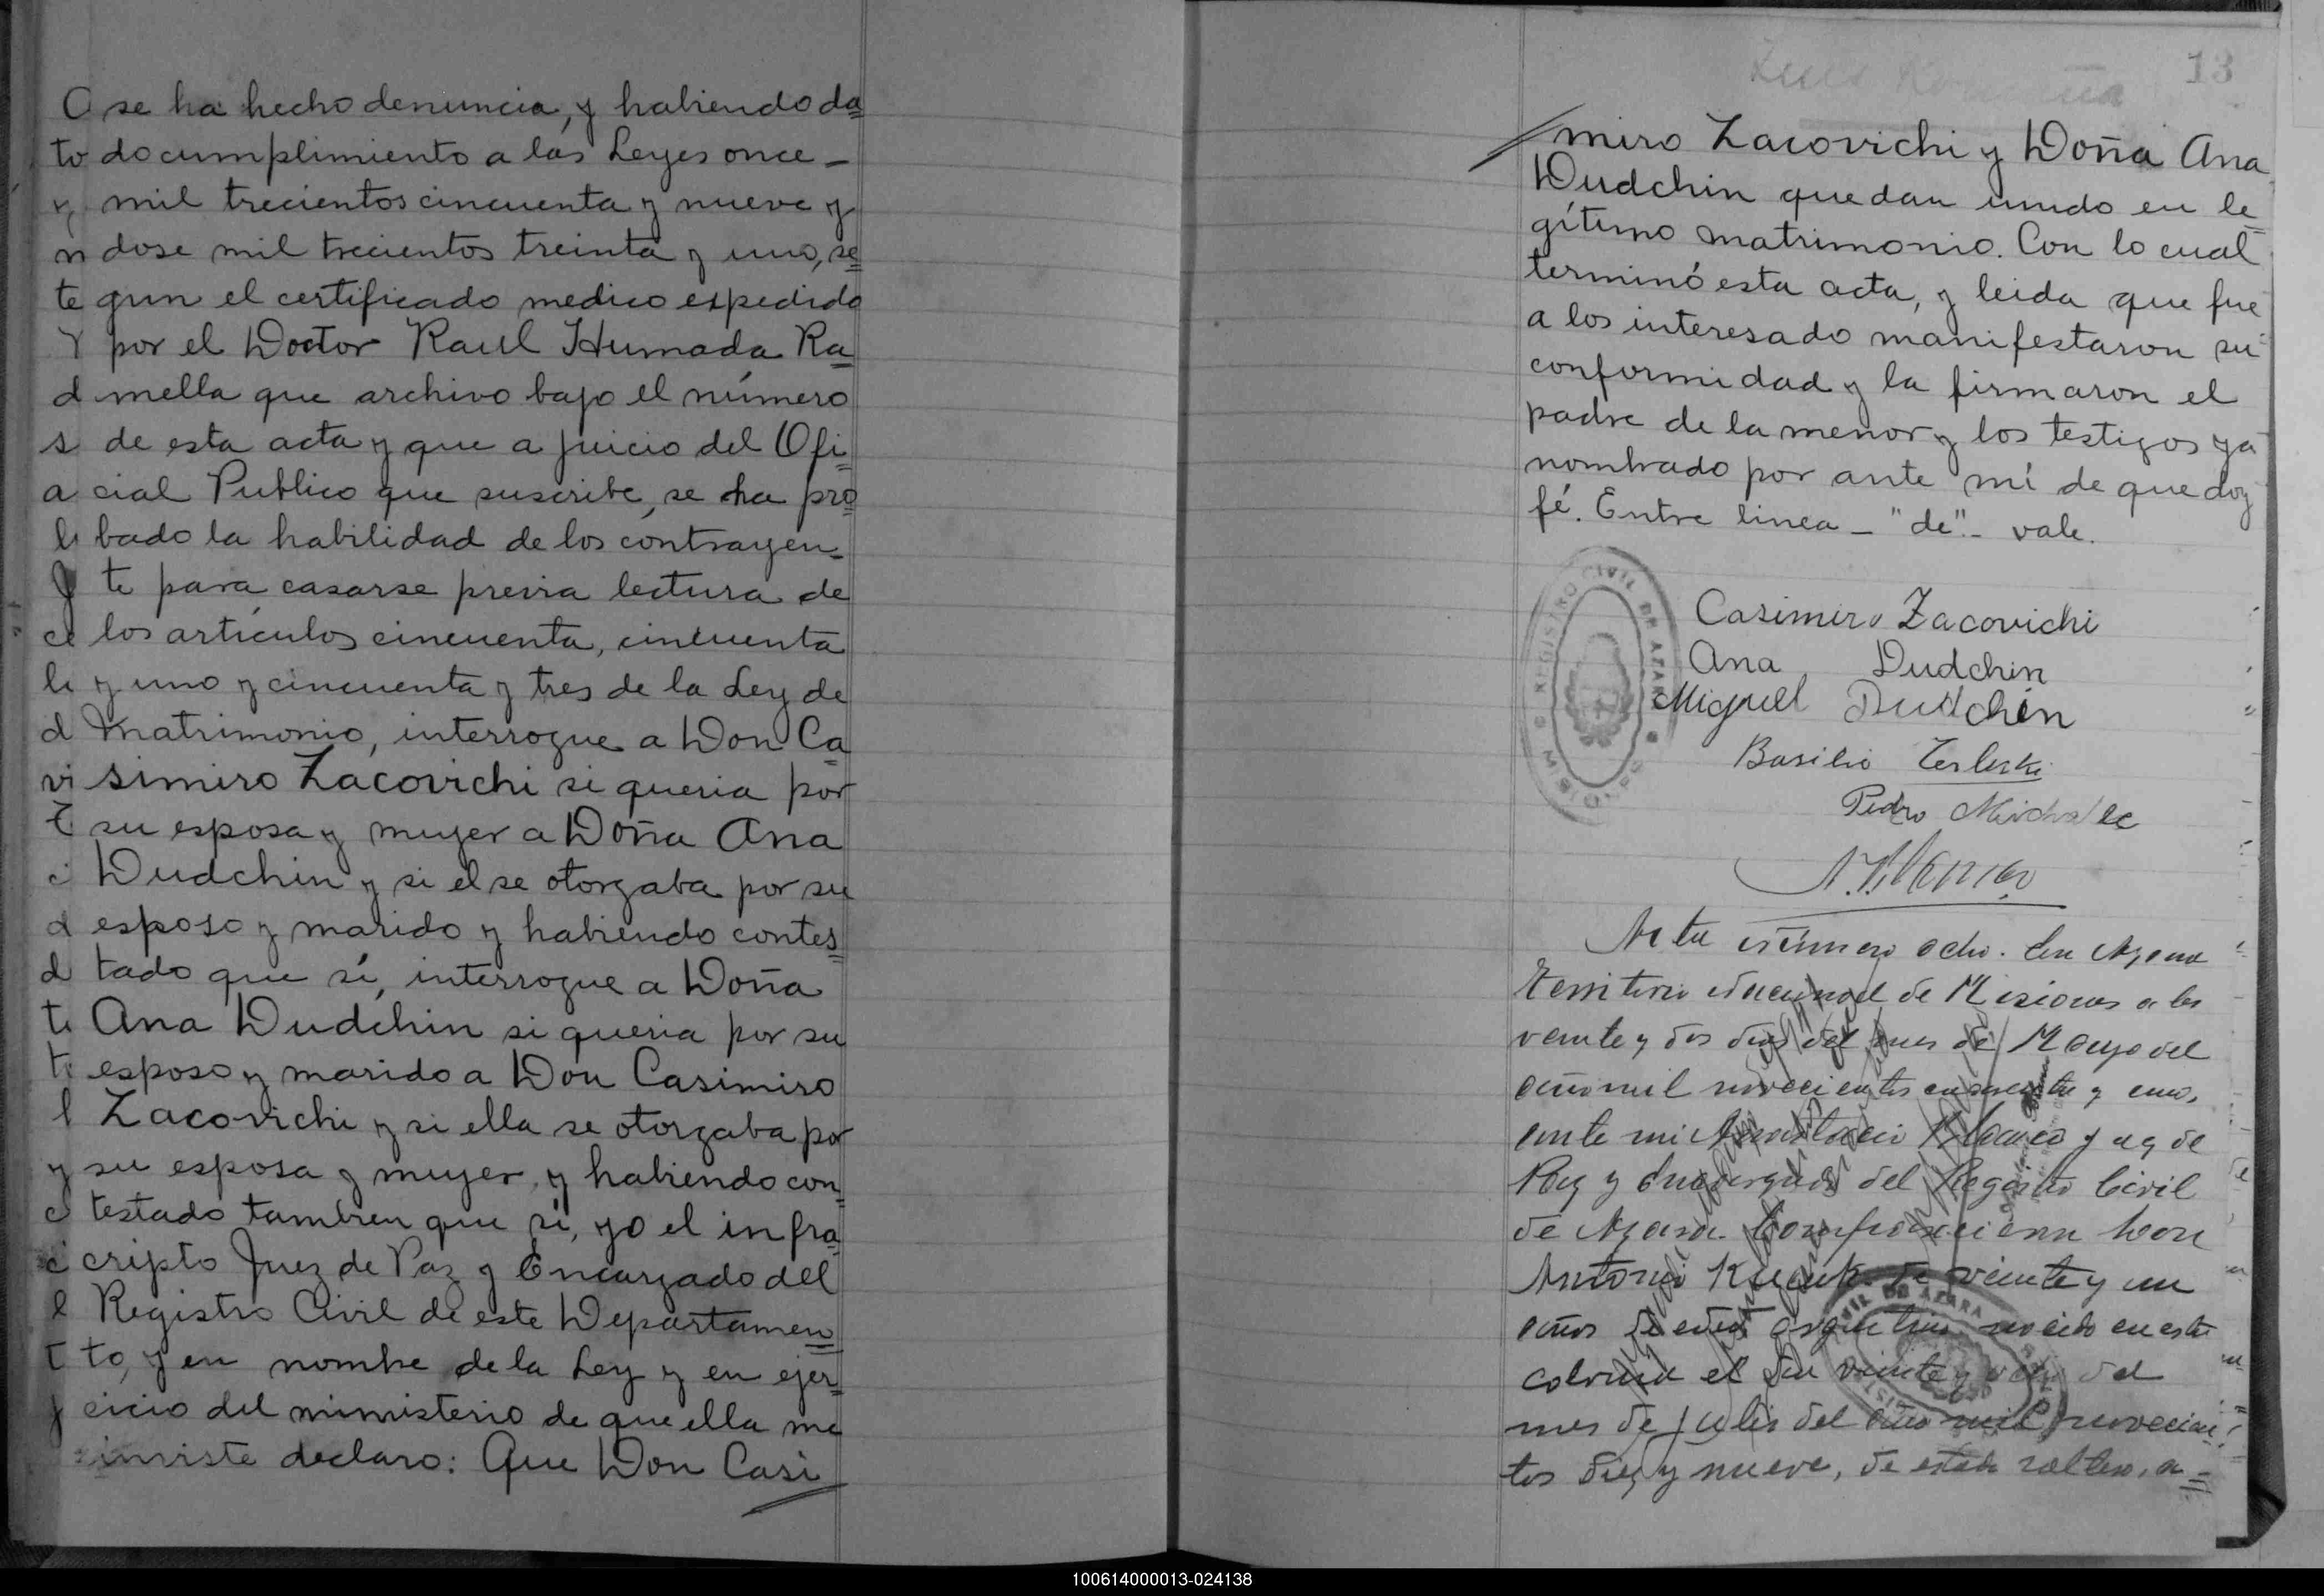 se ha hecho denuncia, y habiendo da=
do cumplimiento a las Leyes once -
mil trecientos cincuenta y nueve y
dose mil trecientos treinta y uno, se=
gun el certificado medico espedido
por el Doctor Raul Humada Ra=
mella que archivo bajo el número
de esta acta y que a juicio del Ofi=
cial Publico que suscribe, se ha pro=
bado la habilidad de los contrayen=
te para casarse previa lectura de
los artículos cincuenta, cincuenta
y uno y cincuenta y tres de la Ley de
Matrimonio, interrogue a Don Ca=
simiro Zacovichi si queria por
su esposa y mujer a Doña Ana
Dudchin y si el se otorgaba por su
esposo y marido y habiendo contes=
tado que sí, interrogue a Doña
Ana Dudchin si queria por su
esposo y marido a Don Casimiro
Zacovichi y si ella se otorgaba por
su esposa y mujer, y habiendo con=
testado tambien que sí, yo el infra=
cripto Juez de Paz y Encargado del
Registro Civil de este Departamen=
to, y en nombre de la Ley y en ejer=
cicio del ministerio de que ella me
inviste declaro: Que Don Casi
13
miro Zacovichi y Doña Ana
Dudchin quedan unido en le=
gítimo matrimonio. Con lo cual
terminó esta acta, y leida que fue
a los interesado manifestaron su
conformidad y la firmaron el
padre de la menor y los testigos ya
nombrado por ante mí de que doy
fé. Entre linea - "de" - vale.
REGISTRO CIVIL DE AZARA
MISIONES
Casimiro Zacovichi
Ana Dudchin
Miguel Dudchin
Basilio Terleski
Pedro
Acta número ocho. En Azara
Territorio Nacional de Misiones a los
veinte y dos dias del mes de Mayo del
año mil novecientos cuarenta y uno,
ante mi Juez de
Paz y Encargado del Registro Civil
de Azara. Comparecieron Don
Antonio de veinte y un
años de edad argentino nacido en esta
colonia el dia veinte y del
mes de Julio del año mil novecien=
tos diez y nueve, de estado soltero, a=
100614000013-024138